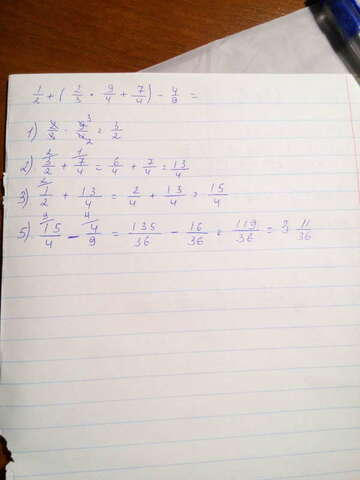 1/2 + ( 2/3 · 9/4 + 7/4 ) - 4/9 =
1) · 9³/4₂ = 3/2
2) ²3/2 + ¹7/4 = 6/4 + 7/4 = 13/4
3) ²1/2 + 13/4 = 2/4 + 13/4 = 15/4
5) ⁹15/4 - ⁴4/9 = 135/36 - 16/36 = 119/36 = 3 11/36